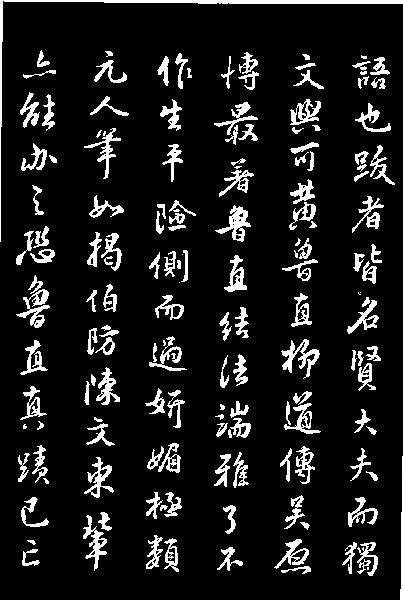 語也跋者皆名賢大夫而獨
文與可黃魯直柳道傳吳原
博最著魯直結法端雅了不
作生平險側而過妍媚極類
元人筆如揭伯防陳文東輩
亦能办之恐魯直真蹟已亡